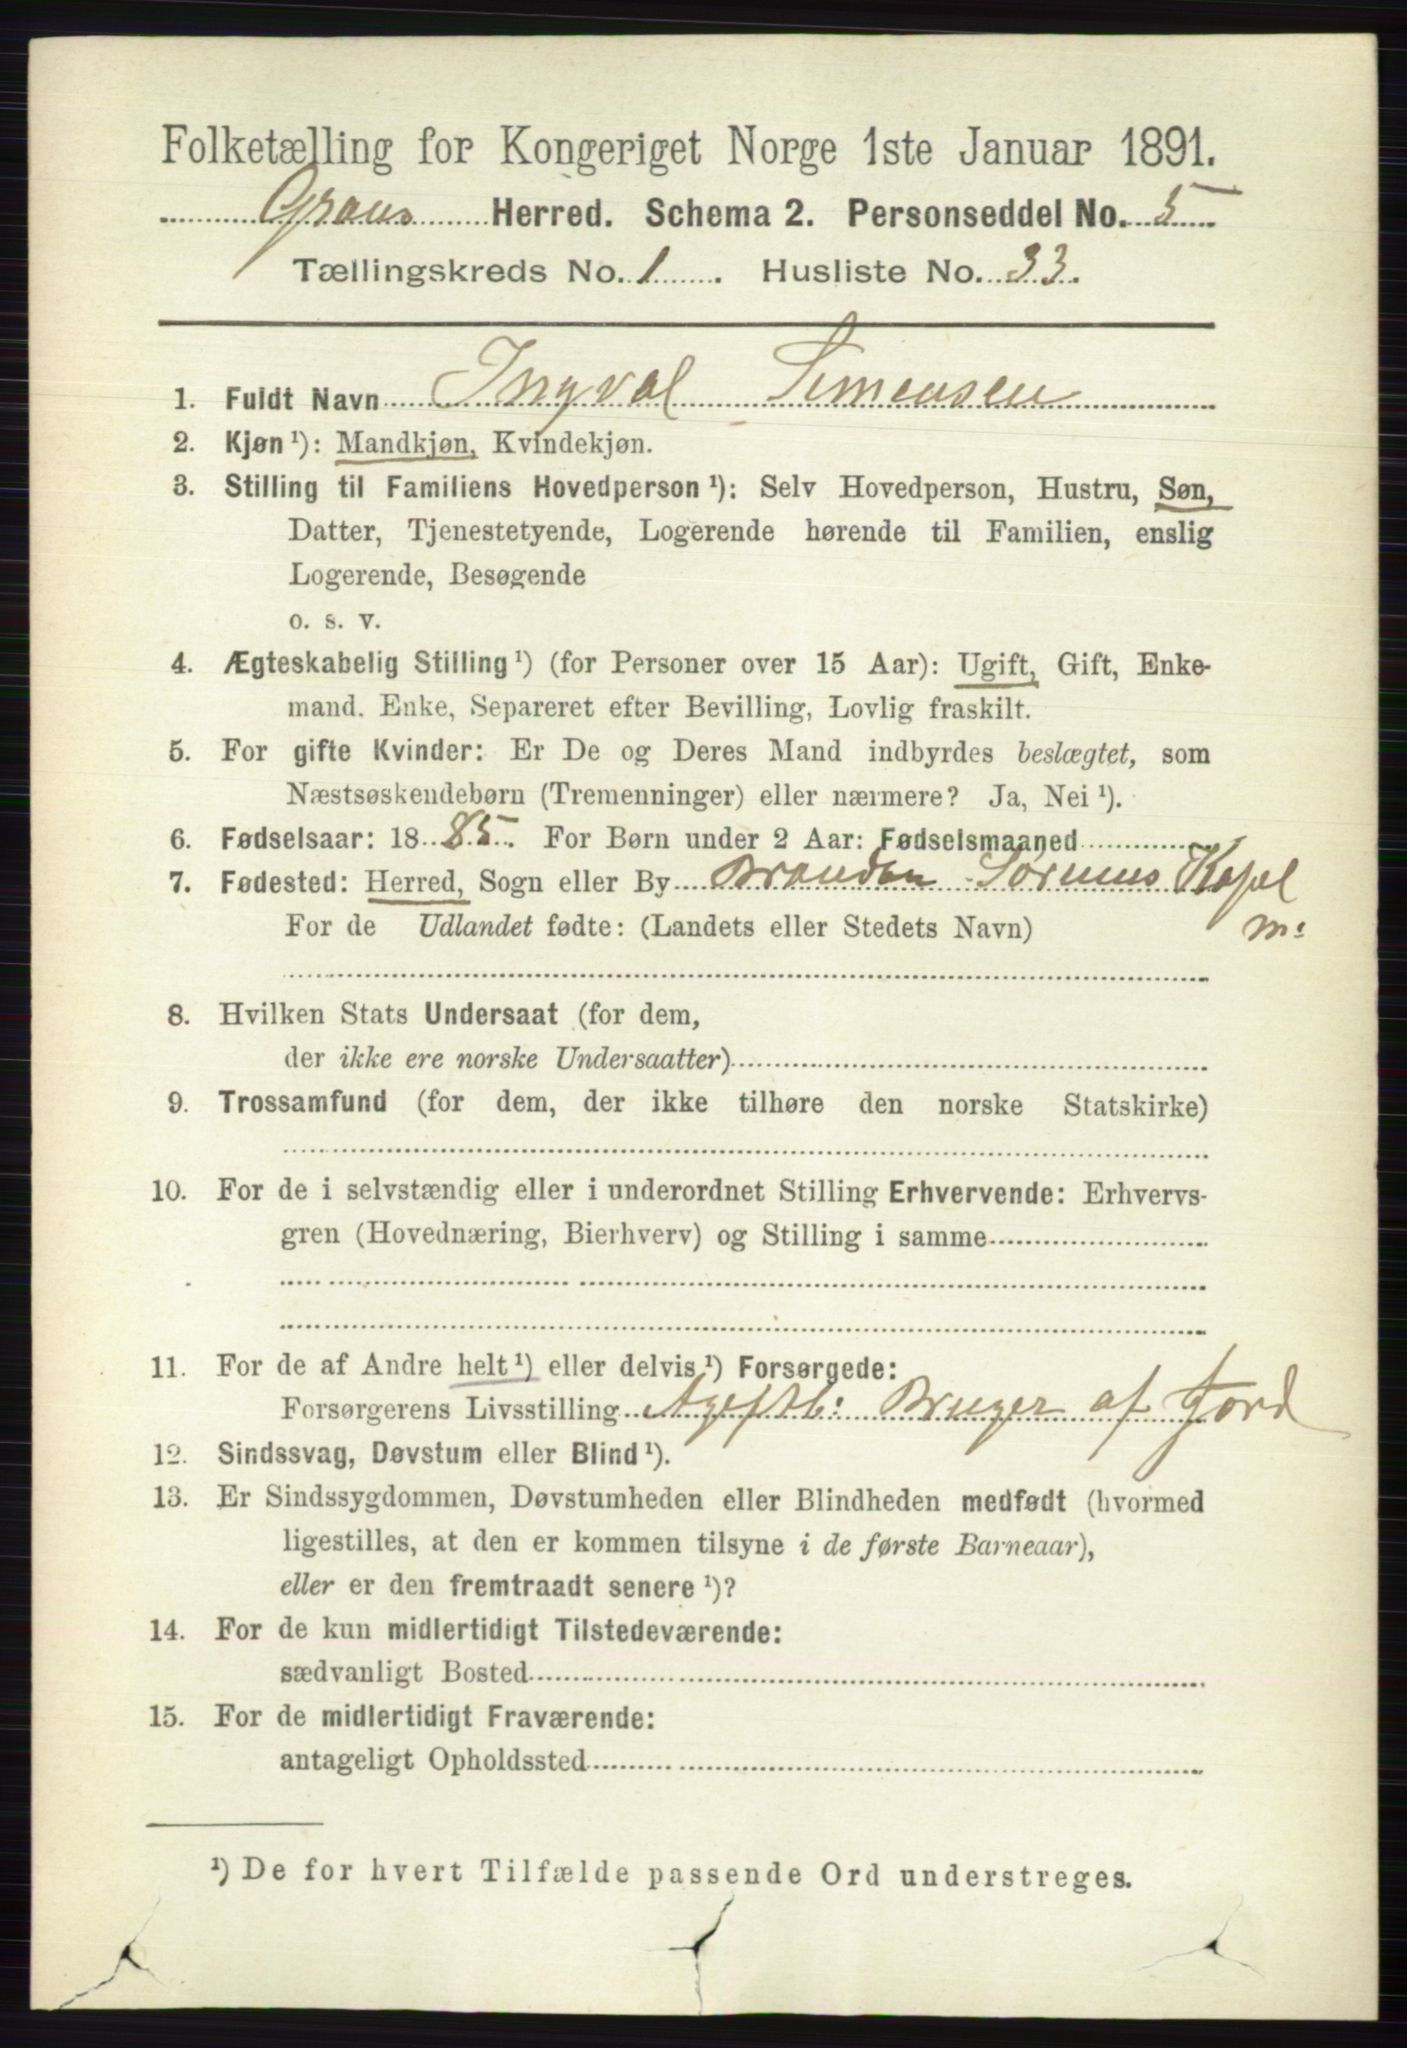 Folketælling for Kongeriget Norge 1ste Januar 1891.
Grans Herred. Schema 2. Personseddel No. 5
Tællingskreds No. 1. Husliste No. 33.
1. Fuldt Navn Ingval Simensen
2. Kjøn ¹): Mandkjøn, Kvindekjøn.
3. Stilling til Familiens Hovedperson ¹): Selv Hovedperson, Hustru, Søn,
Datter, Tjenestetyende, Logerende hørende til Familien, enslig
Logerende, Besøgende
o. s. v.
4. Ægteskabelig Stilling ¹) (for Personer over 15 Aar): Ugift, Gift, Enke-
mand. Enke, Separeret efter Bevilling, Lovlig fraskilt.
5. For gifte Kvinder: Er De og Deres Mand indbyrdes beslægtet, som
Næstsøskendebørn (Tremenninger) eller nærmere? Ja, Nei ¹).
6. Fødselsaar: 1885. For Børn under 2 Aar: Fødselsmaaned
7. Fødested: Herred, Sogn eller By Brandbu Sørums Kapel
For de Udlandet fødte: (Landets eller Stedets Navn) m:
8. Hvilken Stats Undersaat (for dem,
der ikke ere norske Undersaatter)
9. Trossamfund (for dem, der ikke tilhøre den norske Statskirke)
10. For de i selvstændig eller i underordnet Stilling Erhvervende: Erhvervs-
gren (Hovednæring, Bierhverv) og Stilling i samme
11. For de af Andre helt ¹) eller delvis ¹) Forsørgede:
Forsørgerens Livsstilling Bruger af Jord
12. Sindssvag, Døvstum eller Blind ¹).
13. Er Sindssygdommen, Døvstumheden eller Blindheden medfødt (hvormed
ligestilles, at den er kommen tilsyne i de første Barneaar),
eller er den fremtraadt senere ¹)?
14. For de kun midlertidigt Tilstedeværende:
sædvanligt Bosted
15. For de midlertidigt Fraværende:
antageligt Opholdssted
¹) De for hvert Tilfælde passende Ord understreges.